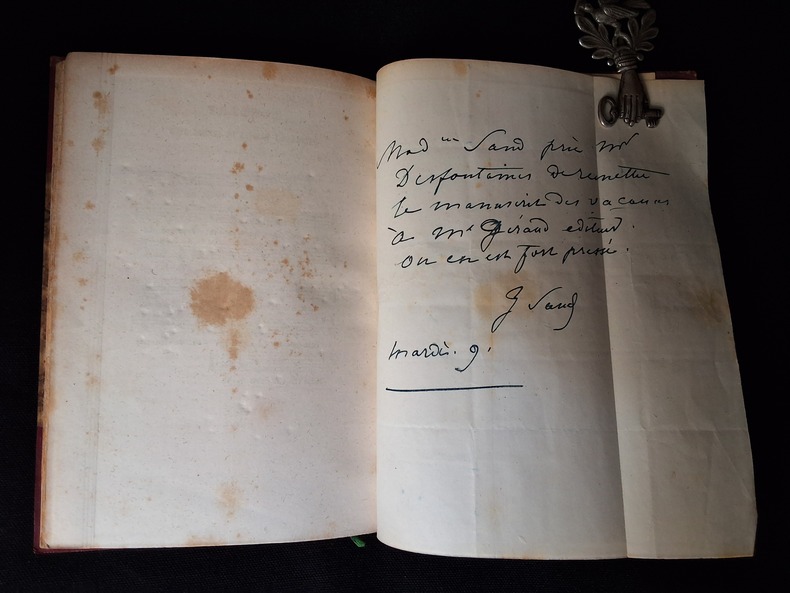 Madme Sand prie Mr
Desfontaines de remettre
le manuscrit des vacances
à Mr Gérard editeur.
on en est fort pressé.
G Sand
mardi. 9.